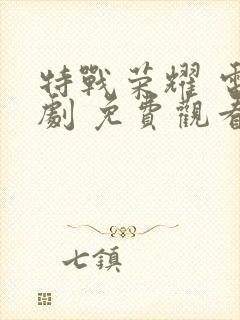 特戰荣耀
劇 免費觀看
七鎮